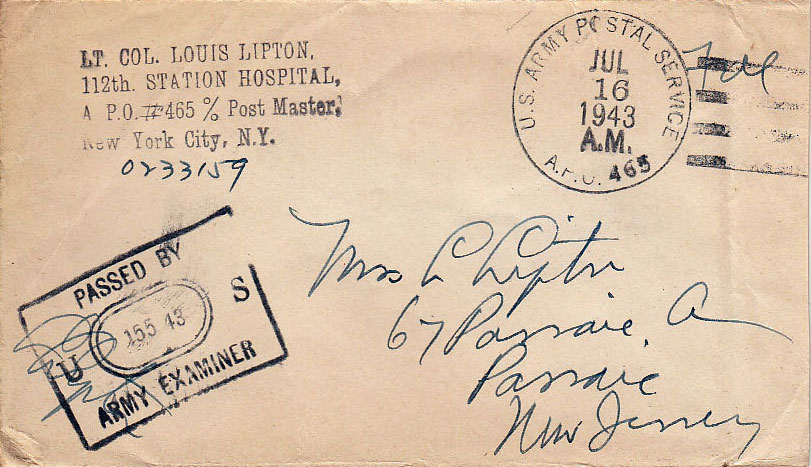 LT. COL. LOUIS LIPTON,
112th. STATION HOSPITAL,
A P.O. #465 % Post Master,
New York City, N.Y.
0233159
U.S. ARMY POSTAL SERVICE
JUL
16
1943
A.M.
A.P.O. 465
PASSED BY
U S
155 43
ARMY EXAMINER
Mrs L Lipton
67 Passaic, A
Passaic
New Jersey